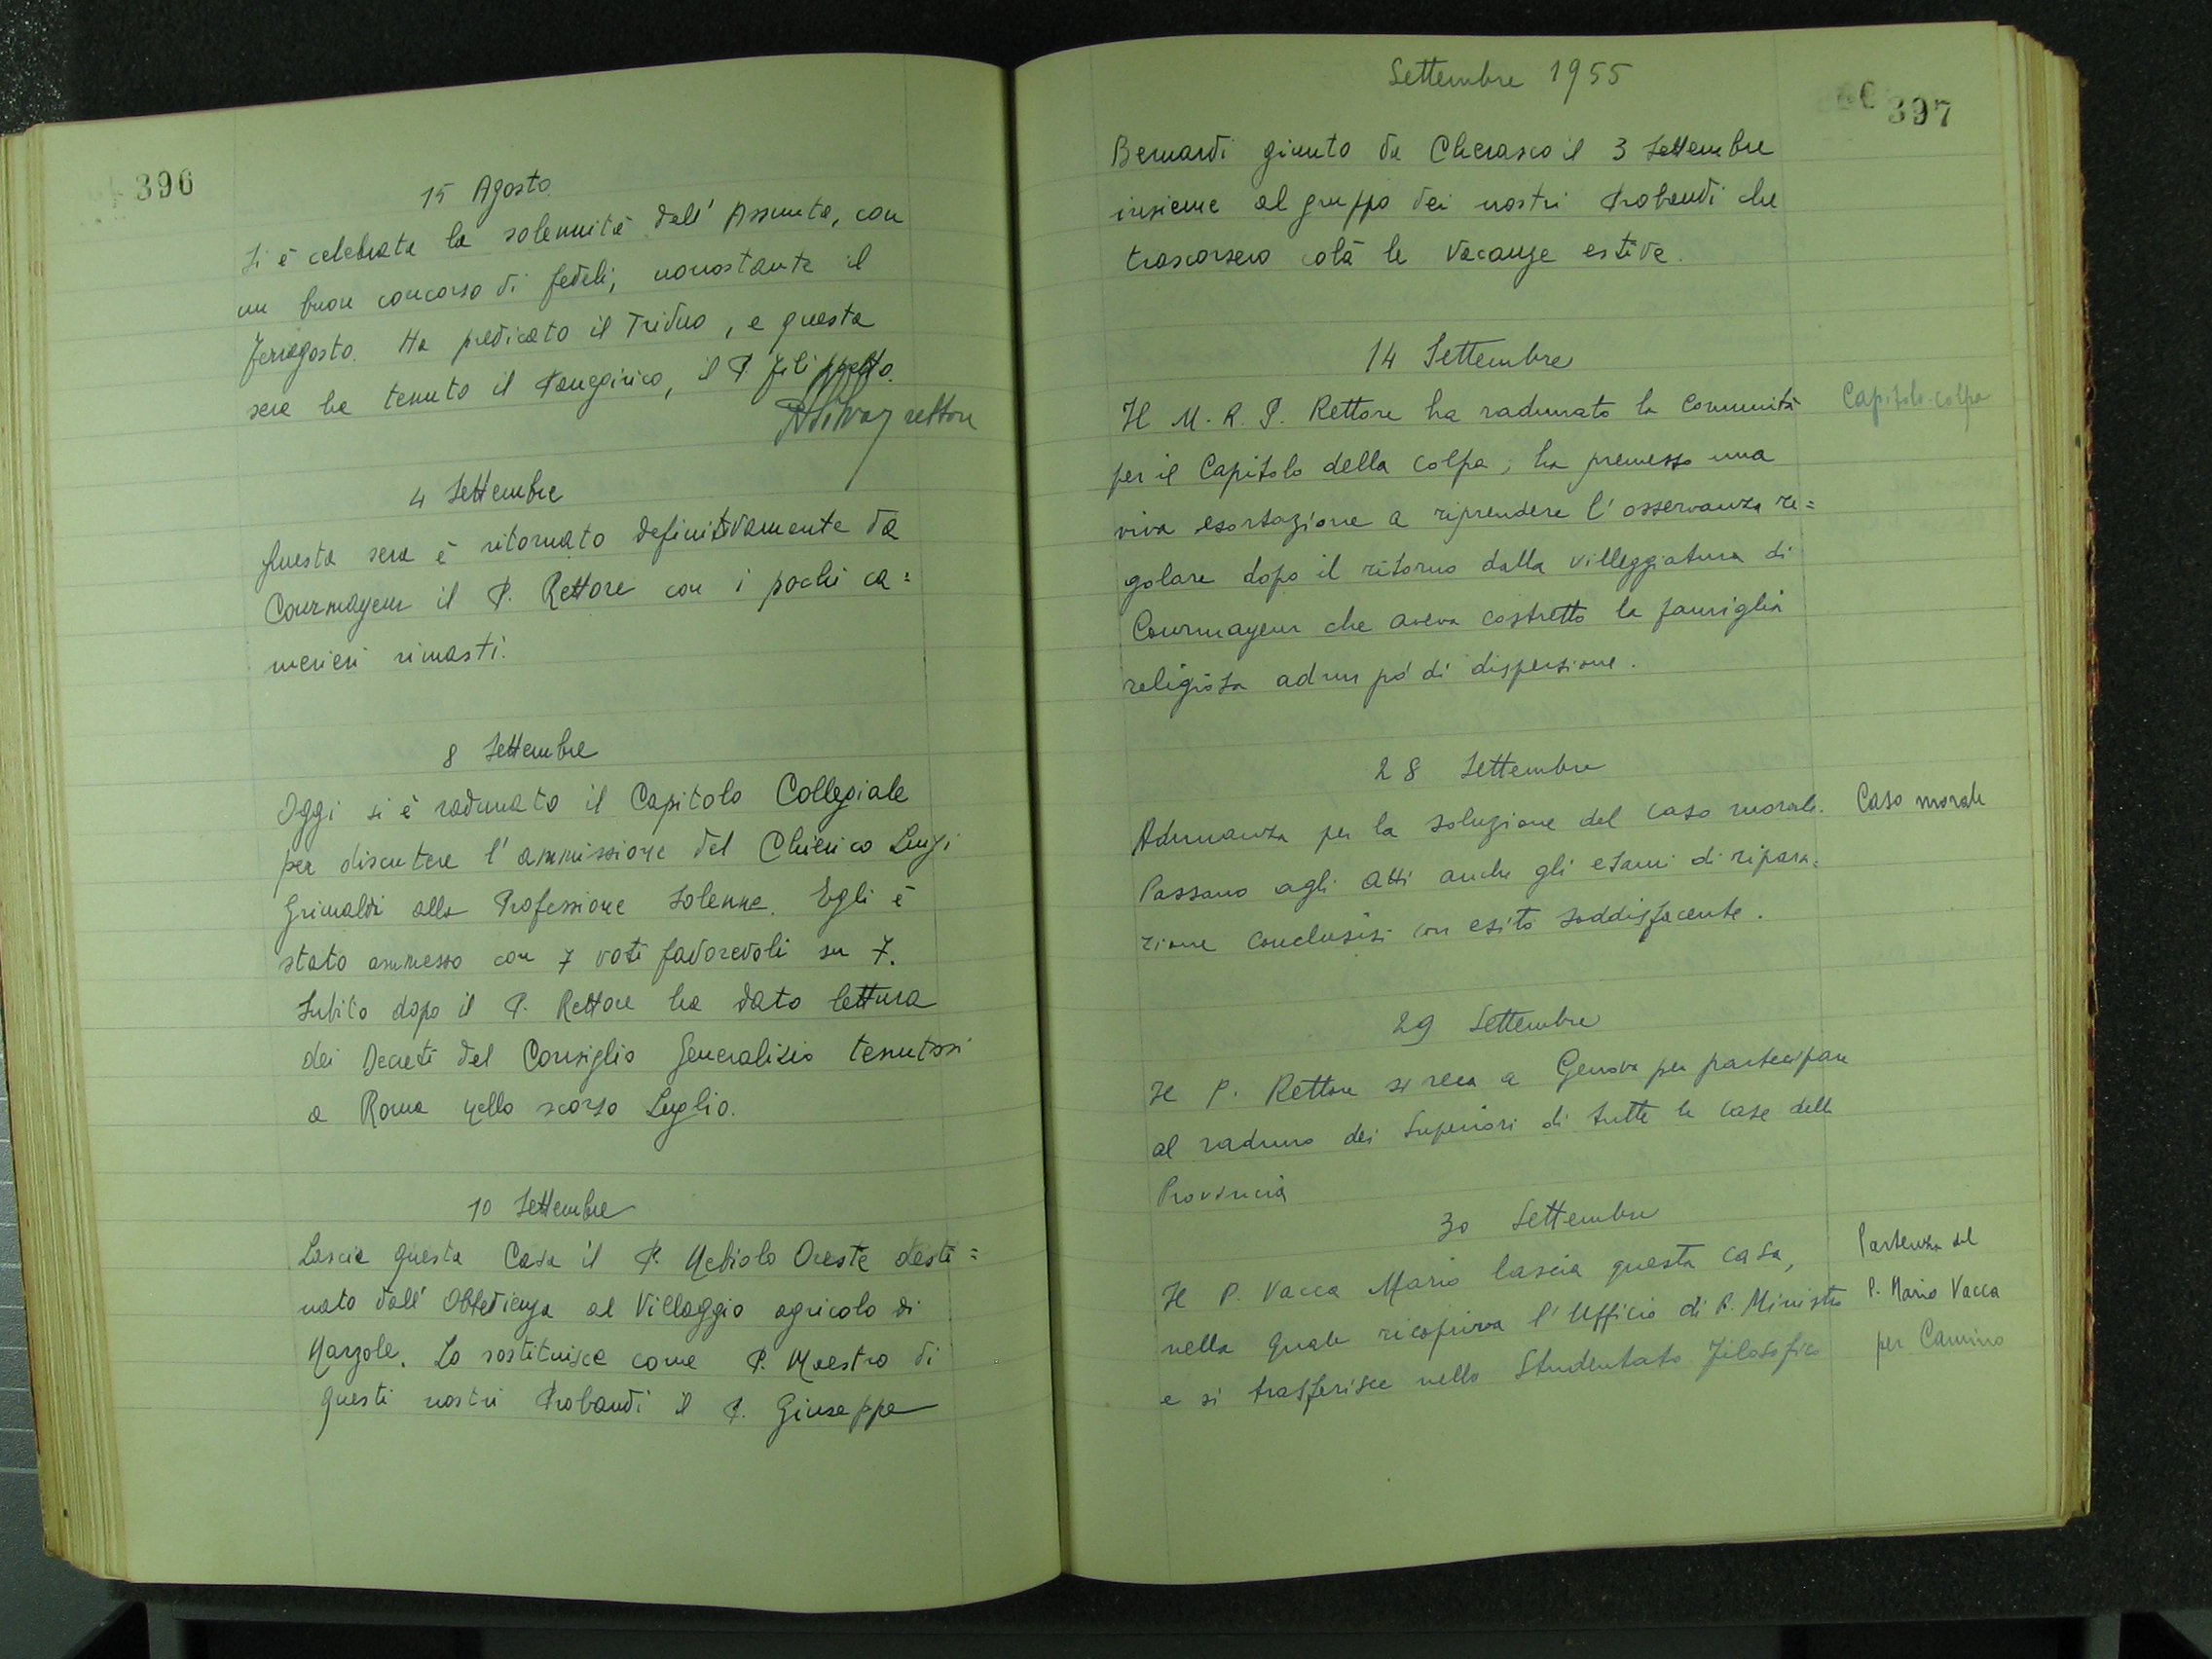 396
15 Agosto
Si è celebrata la solennità dell' Assunta, con
un buon concorso di fedeli, nonostante il
ferragosto. Ha predicato il Triduo, e questa
sera ha tenuto il Panegirico, il P. Filippetto.
rettore
4 Settembre
Questa sera è ritornato definitivamente da
Courmayeur il P. Rettore con i pochi ca=
merieri rimasti.
8 Settembre
Oggi si è radunato il Capitolo Collegiale
per discutere l' ammissione del Chierico Luigi
Grimaldi alla Professione solenne. Egli è
stato ammesso con 7 voti favorevoli su 7.
Subito dopo il P. Rettore ha dato lettura
dei Decreti del Consiglio Generalizio tenutosi
a Roma nello scorso Luglio.
10 Settembre
Lascia questa Casa il P. Oreste desti=
nato dall' Obbedienza al Villaggio agricolo di
Narzole. Lo sostituisce come P. Maestro di
questi nostri Probandi il P. Giuseppe
Settembre 1955
397
Bernardi giunto da Cherasco il 3 Settembre
insieme al gruppo dei nostri Probandi che
trascorsero colà le vacanze estive.
14 Settembre
Il M. R. P. Rettore ha radunato la Comunità
Capitolo colpa
per il Capitolo della colpa; ha premesso una
viva esortazione a riprendere l' osservanza re=
golare dopo il ritorno dalla villeggiatura di
Courmayeur che aveva costretto la famiglia
religiosa ad un pò di dispersione.
28 Settembre
Adunanza per la soluzione del caso morale.
Caso morale
Passano agli atti anche gli esami di ripara=
zione conclusisi con esito soddisfacente.
29 Settembre
Il P. Rettore si reca a Genova per partecipare
al raduno dei Superiori di tutte le case della
Provincia
30 Settembre
Il P. Vacca Mario lascia questa casa,
Partenza del
nella quale ricopriva l' Ufficio di P. Ministro
P. Mario Vacca
e si trasferisce nello Studentato Filosofico
per Camino